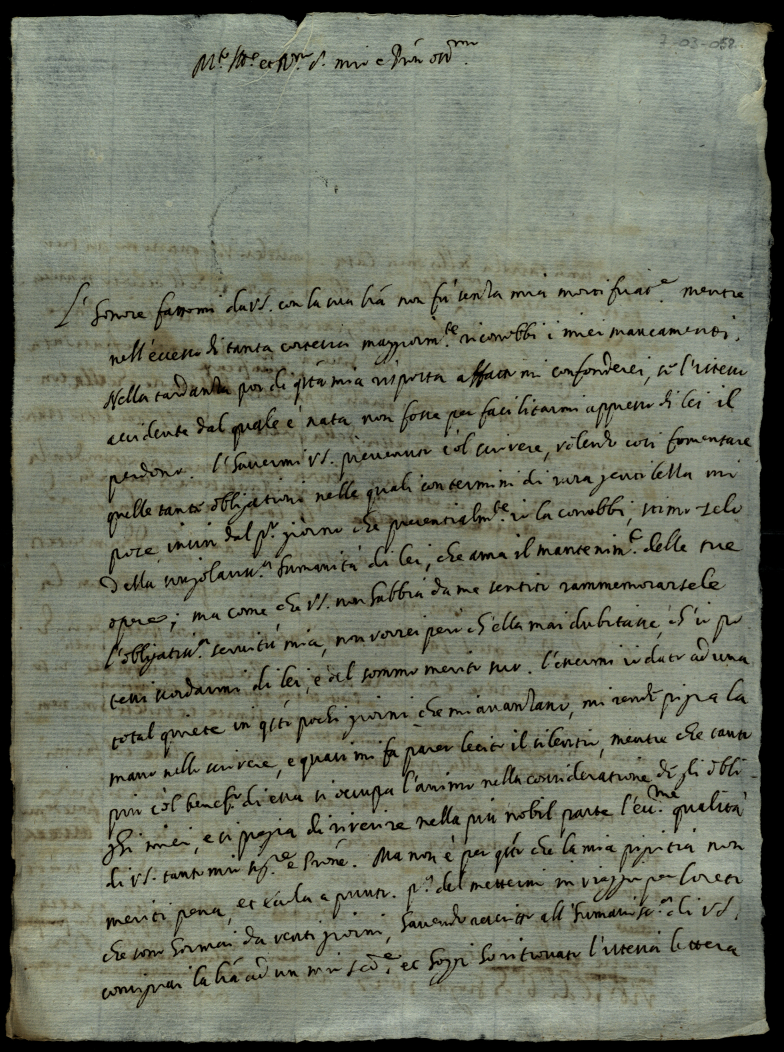 7-03-058
M.to Ill.re et R.mo S.r mio e Pron oss.mo
L'honore fattomi da VS. con la sua l'ra non fù senza mia mortificat.e mentre
nell'eccesso di tanta cortesia maggiorm.te riconobbi i miei mancamenti.
Nella tardanza poi di q'ta mia risposta affatto mi confonderei, se l'istesso
accidente dal quale è nata non fosse per facilitarmi appresso di lei il
perdono. l'havermi VS. prevenuto col scrivere, volendo così fomentare
quelle tante obligationi nelle quali con termini di rara gentilezza mi
pose insin dal p.o giorno che presentialm.te io la conobbi, stimo zelo
della singolariss.a humanità di lei, che ama il mantenim.to delle sue
opere; ma come che VS. non habbia da me sentito rammemorarsele
l'obligatiss.a servitù mia, non vorrei però ch'ella mai dubitasse, ch'io po
tessi scordarmi di lei, e del sommo merito suo. l'essermi io dato ad una
total quiete in q'ti pochi giorni che mi avanzano, mi rende pigra la
mano nello scrivere, e quasi mi fa parer lecito il silentio, mentre che tanto
più col benef.o di esso si occupa l'animo nella consideratione de gli obli
ghi miei, e si pregia di riverire nella più nobil parte l'ecc.me qualità
di VS. tanto mio sig.re e Prone. Ma non è per q'to che la mia pigritia non
meriti pena, et
del mettermi in viaggio per Loreto
che sono hormai da venti giorni, havendo rescritto all'humaniss.a di VS.
consegnai la l'ra ad un mio et hoggi ho ritrovato l'istessa lettera